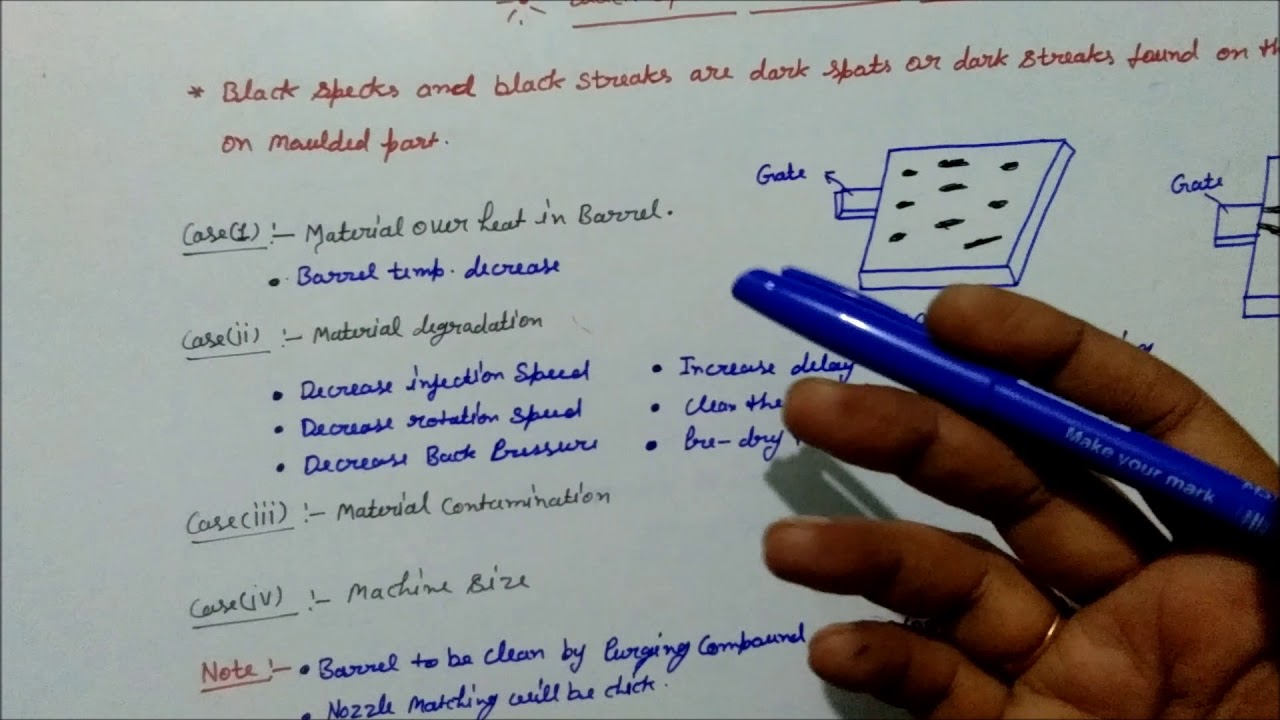 * Black specks and black streaks are dark spats or dark streaks found on th
on maulded part.
Gate
Gate
Case(1) :- Material over heat in Barrel.
• Barrel temp. decrease
Case(ii) :- Material degradation
• Decrease injection Speed
• Increase delay
• Decrease rotation Speed
• Clean the
• Decrease Back Pressure
• Pre-dry
Case(iii) :- Material Contamination
Case(iv) :- Machine Size
Note :- • Barrel to be clean by Purging Compound
• Nozzle Matching will be chick.
Make your mark